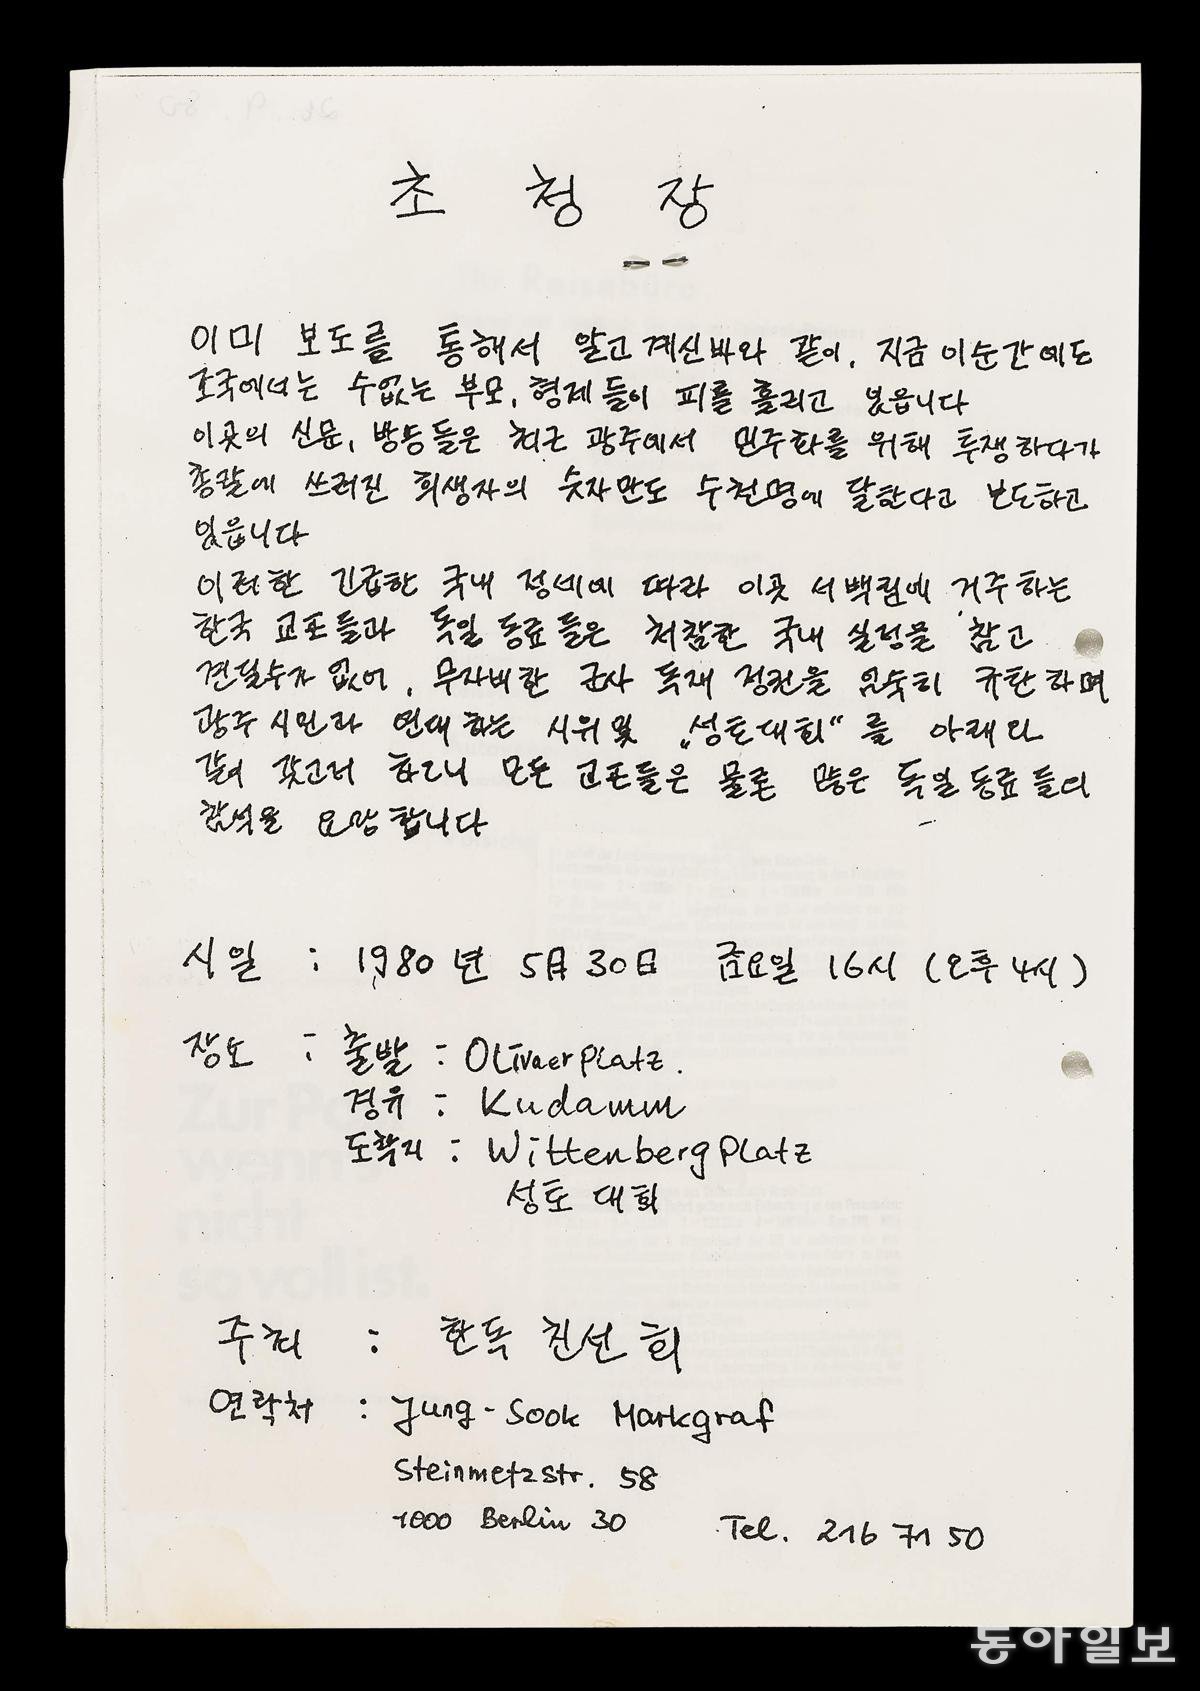 초 청 장
이미 보도를 통해서 알고 계신바와 같이, 지금 이순간에도
조국에서는 수없는 부모, 형제들이 피를 흘리고 있읍니다
이곳의 신문, 방송들은 최근 광주에서 민주화를 위해 투쟁하다가
총칼에 쓰러진 희생자의 숫자만도 수천명에 달한다고 보도하고
있읍니다
이러한 긴급한 국내 정세에 따라 이곳 서백림에 거주하는
한국 교포들과 독일 동료들은 처참한 국내 실정을 참고
견딜수가 없어, 무자비한 군사 독재 정권을 엄숙히 규탄하며
광주 시민과 연대하는 시위 및 „성토대회“를 아래와
같이 갖고저 하오니 모든 교포들은 물론 많은 독일 동료들의
참석을 요망합니다
시일 : 1980년 5月 30日 금요일 16시 (오후 4시)
장소 : 출발 : Olivaerplatz.
경유 : Kudamm
도착지 : Wittenbergplatz
성토 대회
주최 : 한독 친선회
연락처 : Jung-Sook Markgraf
Steinmetzstr. 58
1000 Berlin 30 Tel. 216 71 50
동아일보